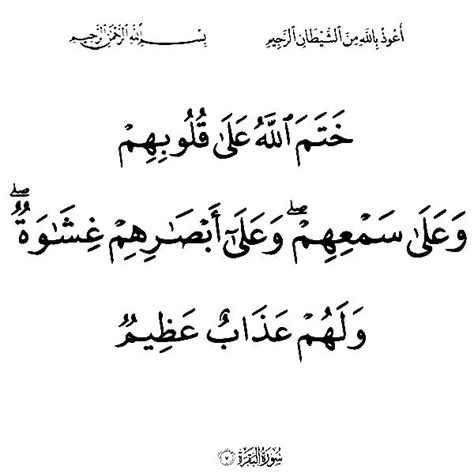 أَعُوذُ بِاللَّهِ مِنَ الشَّيْطَانِ الرَّجِيمِ بِسْمِ اللَّهِ الرَّحْمَٰنِ الرَّحِيمِ
خَتَمَ ٱللَّهُ عَلَىٰ قُلُوبِهِمْ
وَعَلَىٰ سَمْعِهِمْ ۖ وَعَلَىٰٓ أَبْصَٰرِهِمْ غِشَٰوَةٌ ۖ
وَلَهُمْ عَذَابٌ عَظِيمٌ
سُورَةُ البَقَرَة ٧